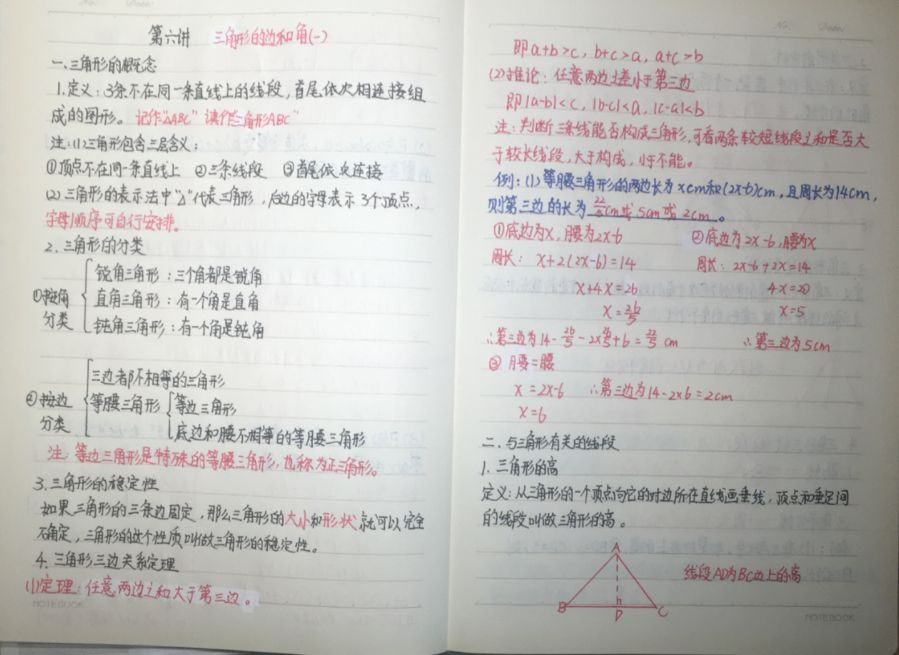 第六讲 三角形的边和角(一)
一、三角形的概念
1.定义：3条不在同一条直线上的线段，首尾依次相连接组
成的图形。记作"△ABC" 读作"三角形ABC"
注：(1)三角形包含三层含义：
①顶点不在同一条直线上 ②三条线段 ③首尾依次连接
(2)三角形的表示法中"△"代表三角形，后边的字母表示3个顶点，
字母顺序可自行安排。
2.三角形的分类
①按角分类
锐角三角形：三个角都是锐角
直角三角形：有一个角是直角
钝角三角形：有一个角是钝角
②按边分类
三边都不相等的三角形
等腰三角形
等边三角形
底边和腰不相等的等腰三角形
注：等边三角形是特殊的等腰三角形，也称为正三角形。
3.三角形的稳定性
如果三角形的三条边固定，那么三角形的大小和形状就可以完全
确定，三角形的这个性质叫做三角形的稳定性。
4.三角形三边关系定理
(1)定理：任意两边之和大于第三边。
NOTEBOOK
即a+b>c，b+c>a，a+c>b
(2)推论：任意两边之差小于第三边
即|a-b|<c，|b-c|<a，|c-a|<b
注：判断三条线能否构成三角形，可看两条较短线段之和是否大
于较长线段，大于构成，小于不能。
例：(1)等腰三角形的两边长为xcm和(2x-6)cm，且周长为14cm，
则第三边的长为22/5cm或5cm或2cm。
①底边为x，腰为2x-6 ②底边为2x-6，腰为x
周长：x+2(2x-6)=14 周长：2x-6+2x=14
x+4x=26 4x=20
x=26/5 x=5
∴第三边为14-26/5-2×26/5+6=22/5cm ∴第三边为5cm
③腰=腰
x=2x-6 ∴第三边为14-2×6=2cm
x=6
二、与三角形有关的线段
1.三角形的高
定义：从三角形的一个顶点向它的对边所在直线画垂线，顶点和垂足间
的线段叫做三角形的高。
A
线段AD为BC边上的高
B D C
NOTEBOOK